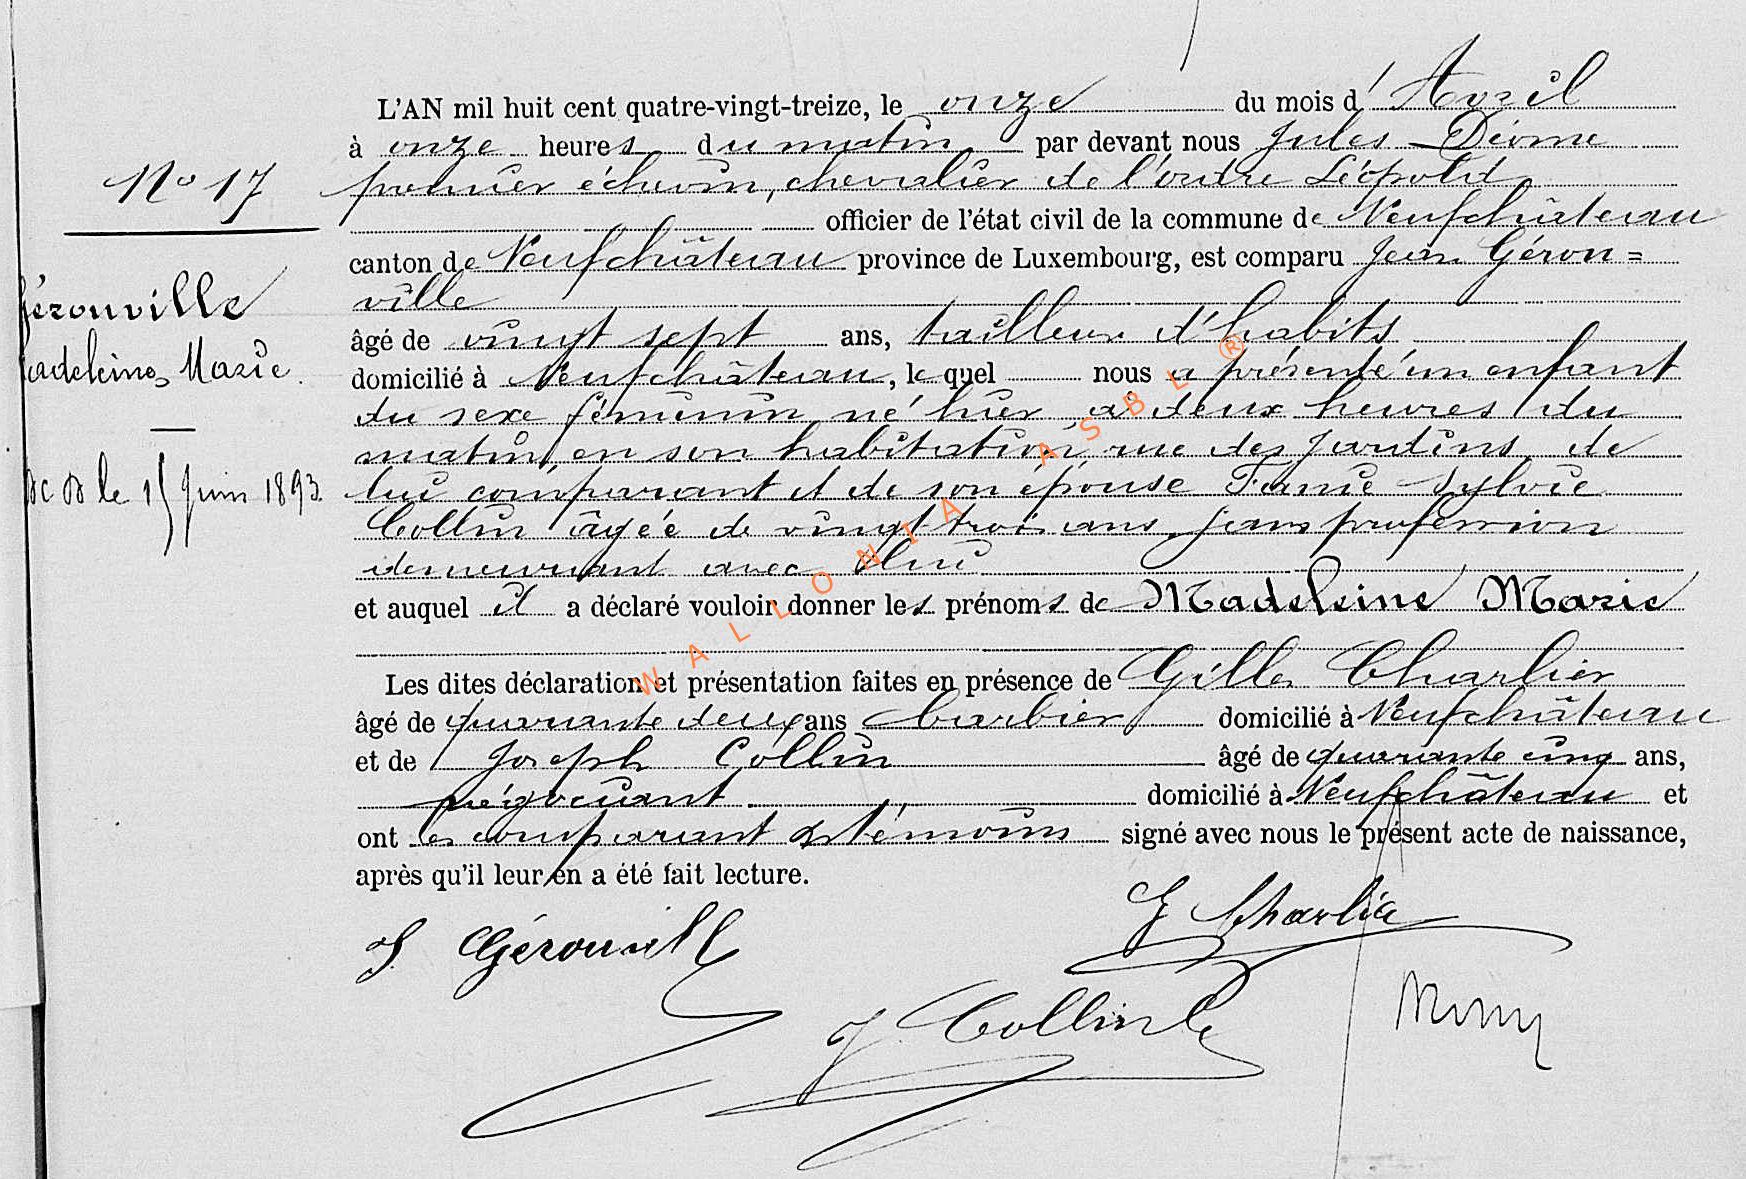 L'AN mil huit cent quatre-vingt-treize, le onze du mois d'Avril
à onze heures du matin par devant nous Jules
premier échevin, chevalier de l'ordre Léopold
officier de l'état civil de la commune de Neufchâteau
canton de Neufchâteau province de Luxembourg, est comparu Jean Gérou=
ville
âgé de vingt sept ans, tailleur d'habits
domicilié à Neufchâteau, lequel nous a présenté un enfant
du sexe féminin, né hier à deux heures du
matin, en son habitation, rue des Jardins, de
lui comparant et de son épouse Fanie Sylvie
Collin âgée de vingt trois ans, sans profession
demeurant avec lui
et auquel il a déclaré vouloir donner les prénoms de Madeleine Marie
Les dites déclaration et présentation faites en présence de Gilles Charlier
âgé de quarante deux ans barbier domicilié à Neufchâteau
et de Joseph Collin âgé de quarante cinq ans,
négociant domicilié à Neufchâteau et
ont les comparant et témoins signé avec nous le présent acte de naissance,
après qu'il leur en a été fait lecture.
J. Gérouvill
G Charlier
J. Collin
No 17
Gérouville
Madeleine, Marie.
le 15 juin 1893.
WALLONIA ASBL ®